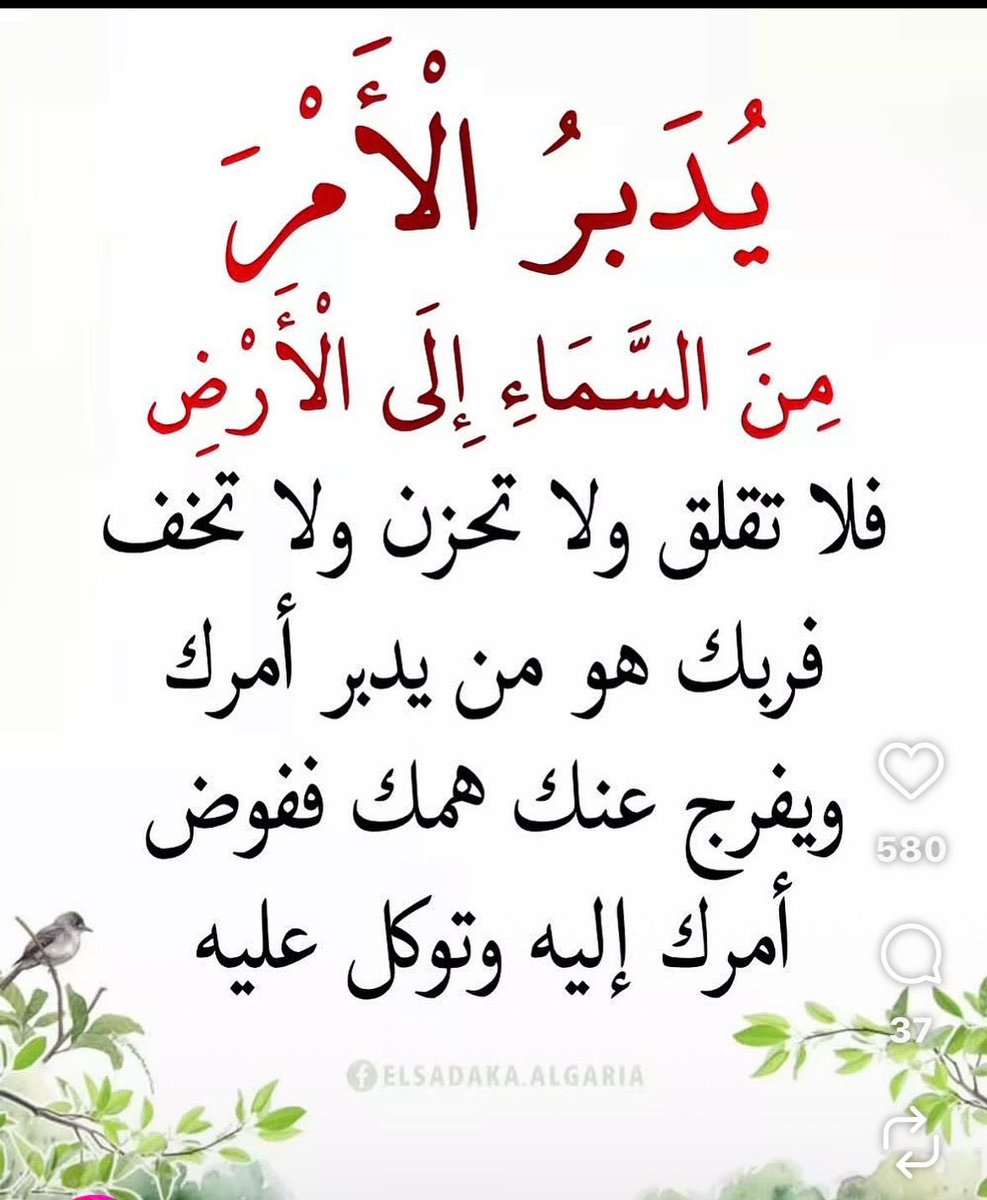 يُدَبرُ الْأَمْرَ
مِنَ السَّمَاءِ إِلَى الْأَرْضِ
فلا تقلق ولا تحزن ولا تخف
فربك هو من يدبر أمرك
ويفرج عنك همك ففوض
أمرك إليه وتوكل عليه
580
37
ELSADAKA.ALGARIA